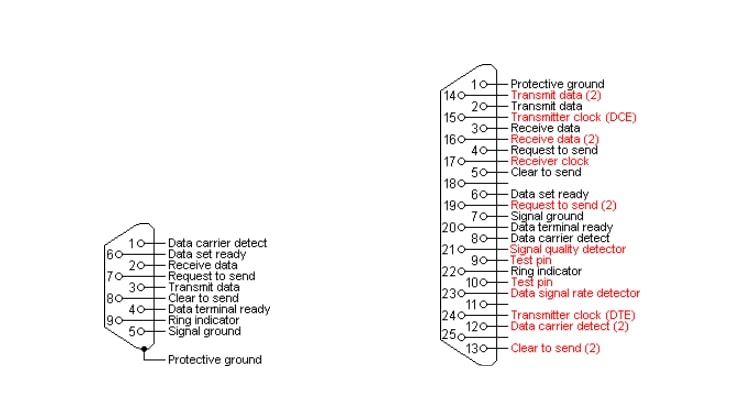 1 Data carrier detect
6 Data set ready
2 Receive data
7 Request to send
3 Transmit data
8 Clear to send
4 Data terminal ready
9 Ring indicator
5 Signal ground
Protective ground
1 Protective ground
14 Transmit data (2)
2 Transmit data
15 Transmitter clock (DCE)
3 Receive data
16 Receive data (2)
4 Request to send
17 Receiver clock
5 Clear to send
18
6 Data set ready
19 Request to send (2)
7 Signal ground
20 Data terminal ready
8 Data carrier detect
21 Signal quality detector
9 Test pin
22 Ring indicator
10 Test pin
23 Data signal rate detector
11
24 Transmitter clock (DTE)
12 Data carrier detect (2)
25
13 Clear to send (2)